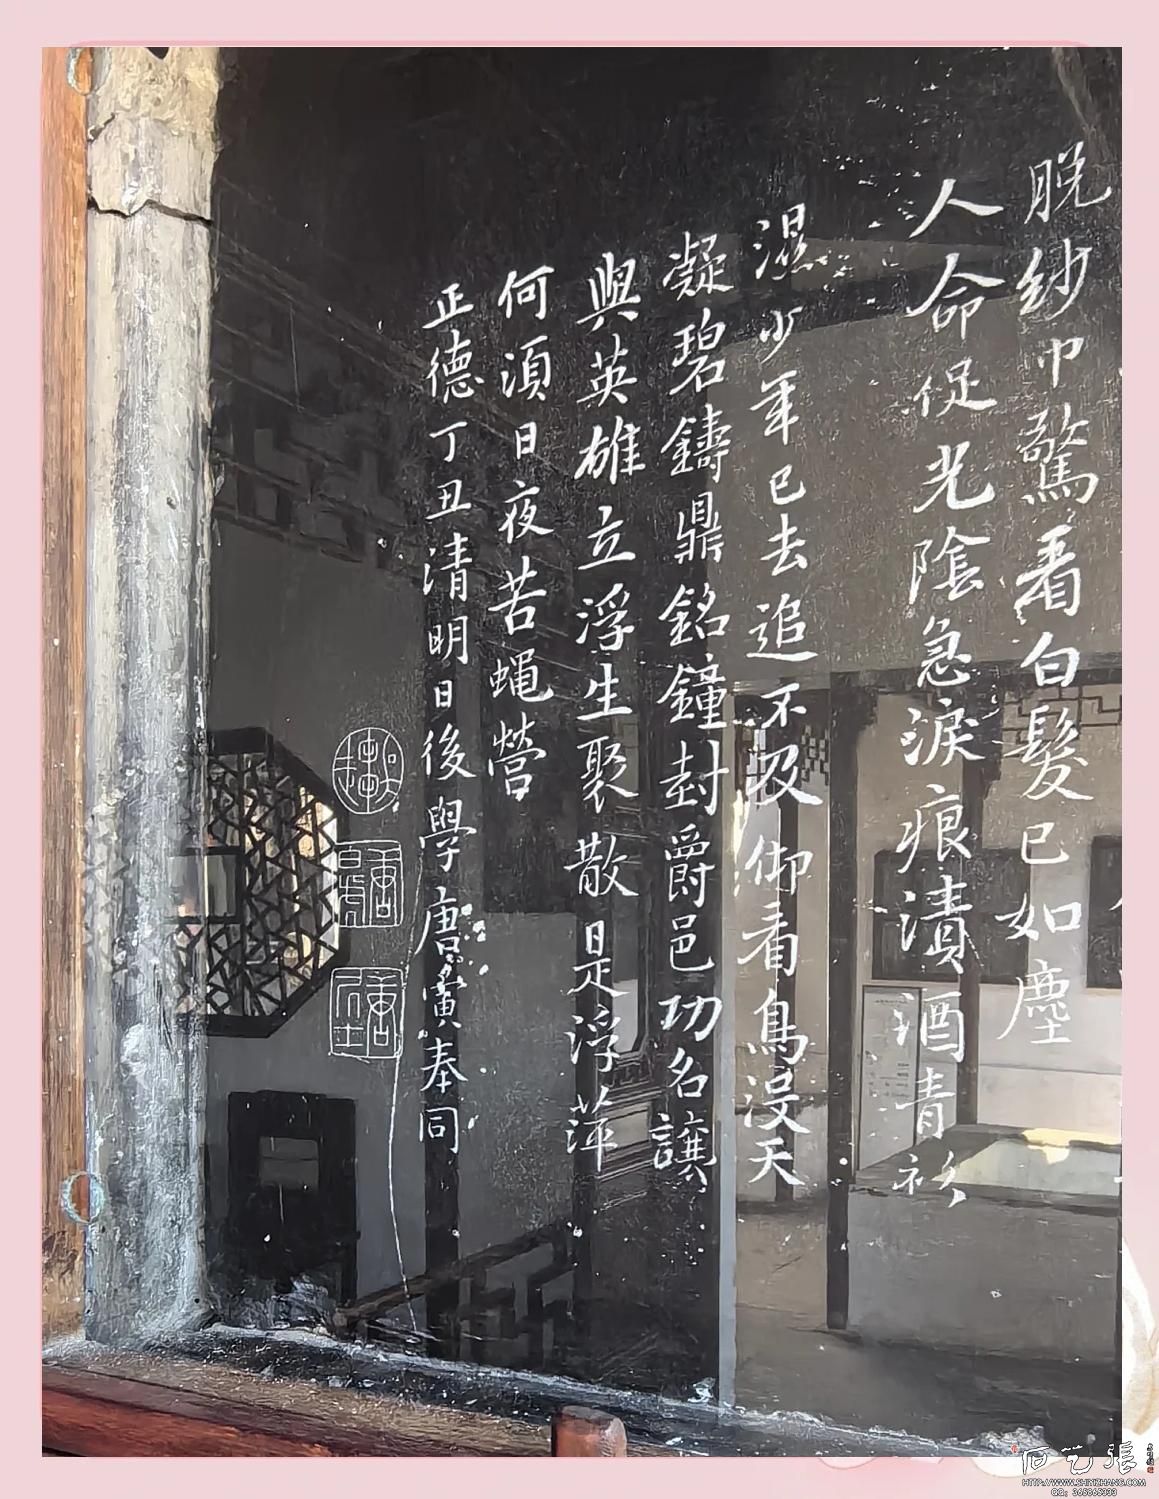 脱紗巾驚看白髮已如塵
人命促光陰急淚痕漬酒青衫
濕少年已去追不及仰看鳥没天
凝碧鑄鼎銘鐘封爵邑功名讓
與英雄立浮生聚散是浮萍
何須日夜苦蠅營
正德丁丑清明日後學唐寅奉同
石艺張
HTTP://WWW.SHIYIZHANG.COM
QQ: 365865333